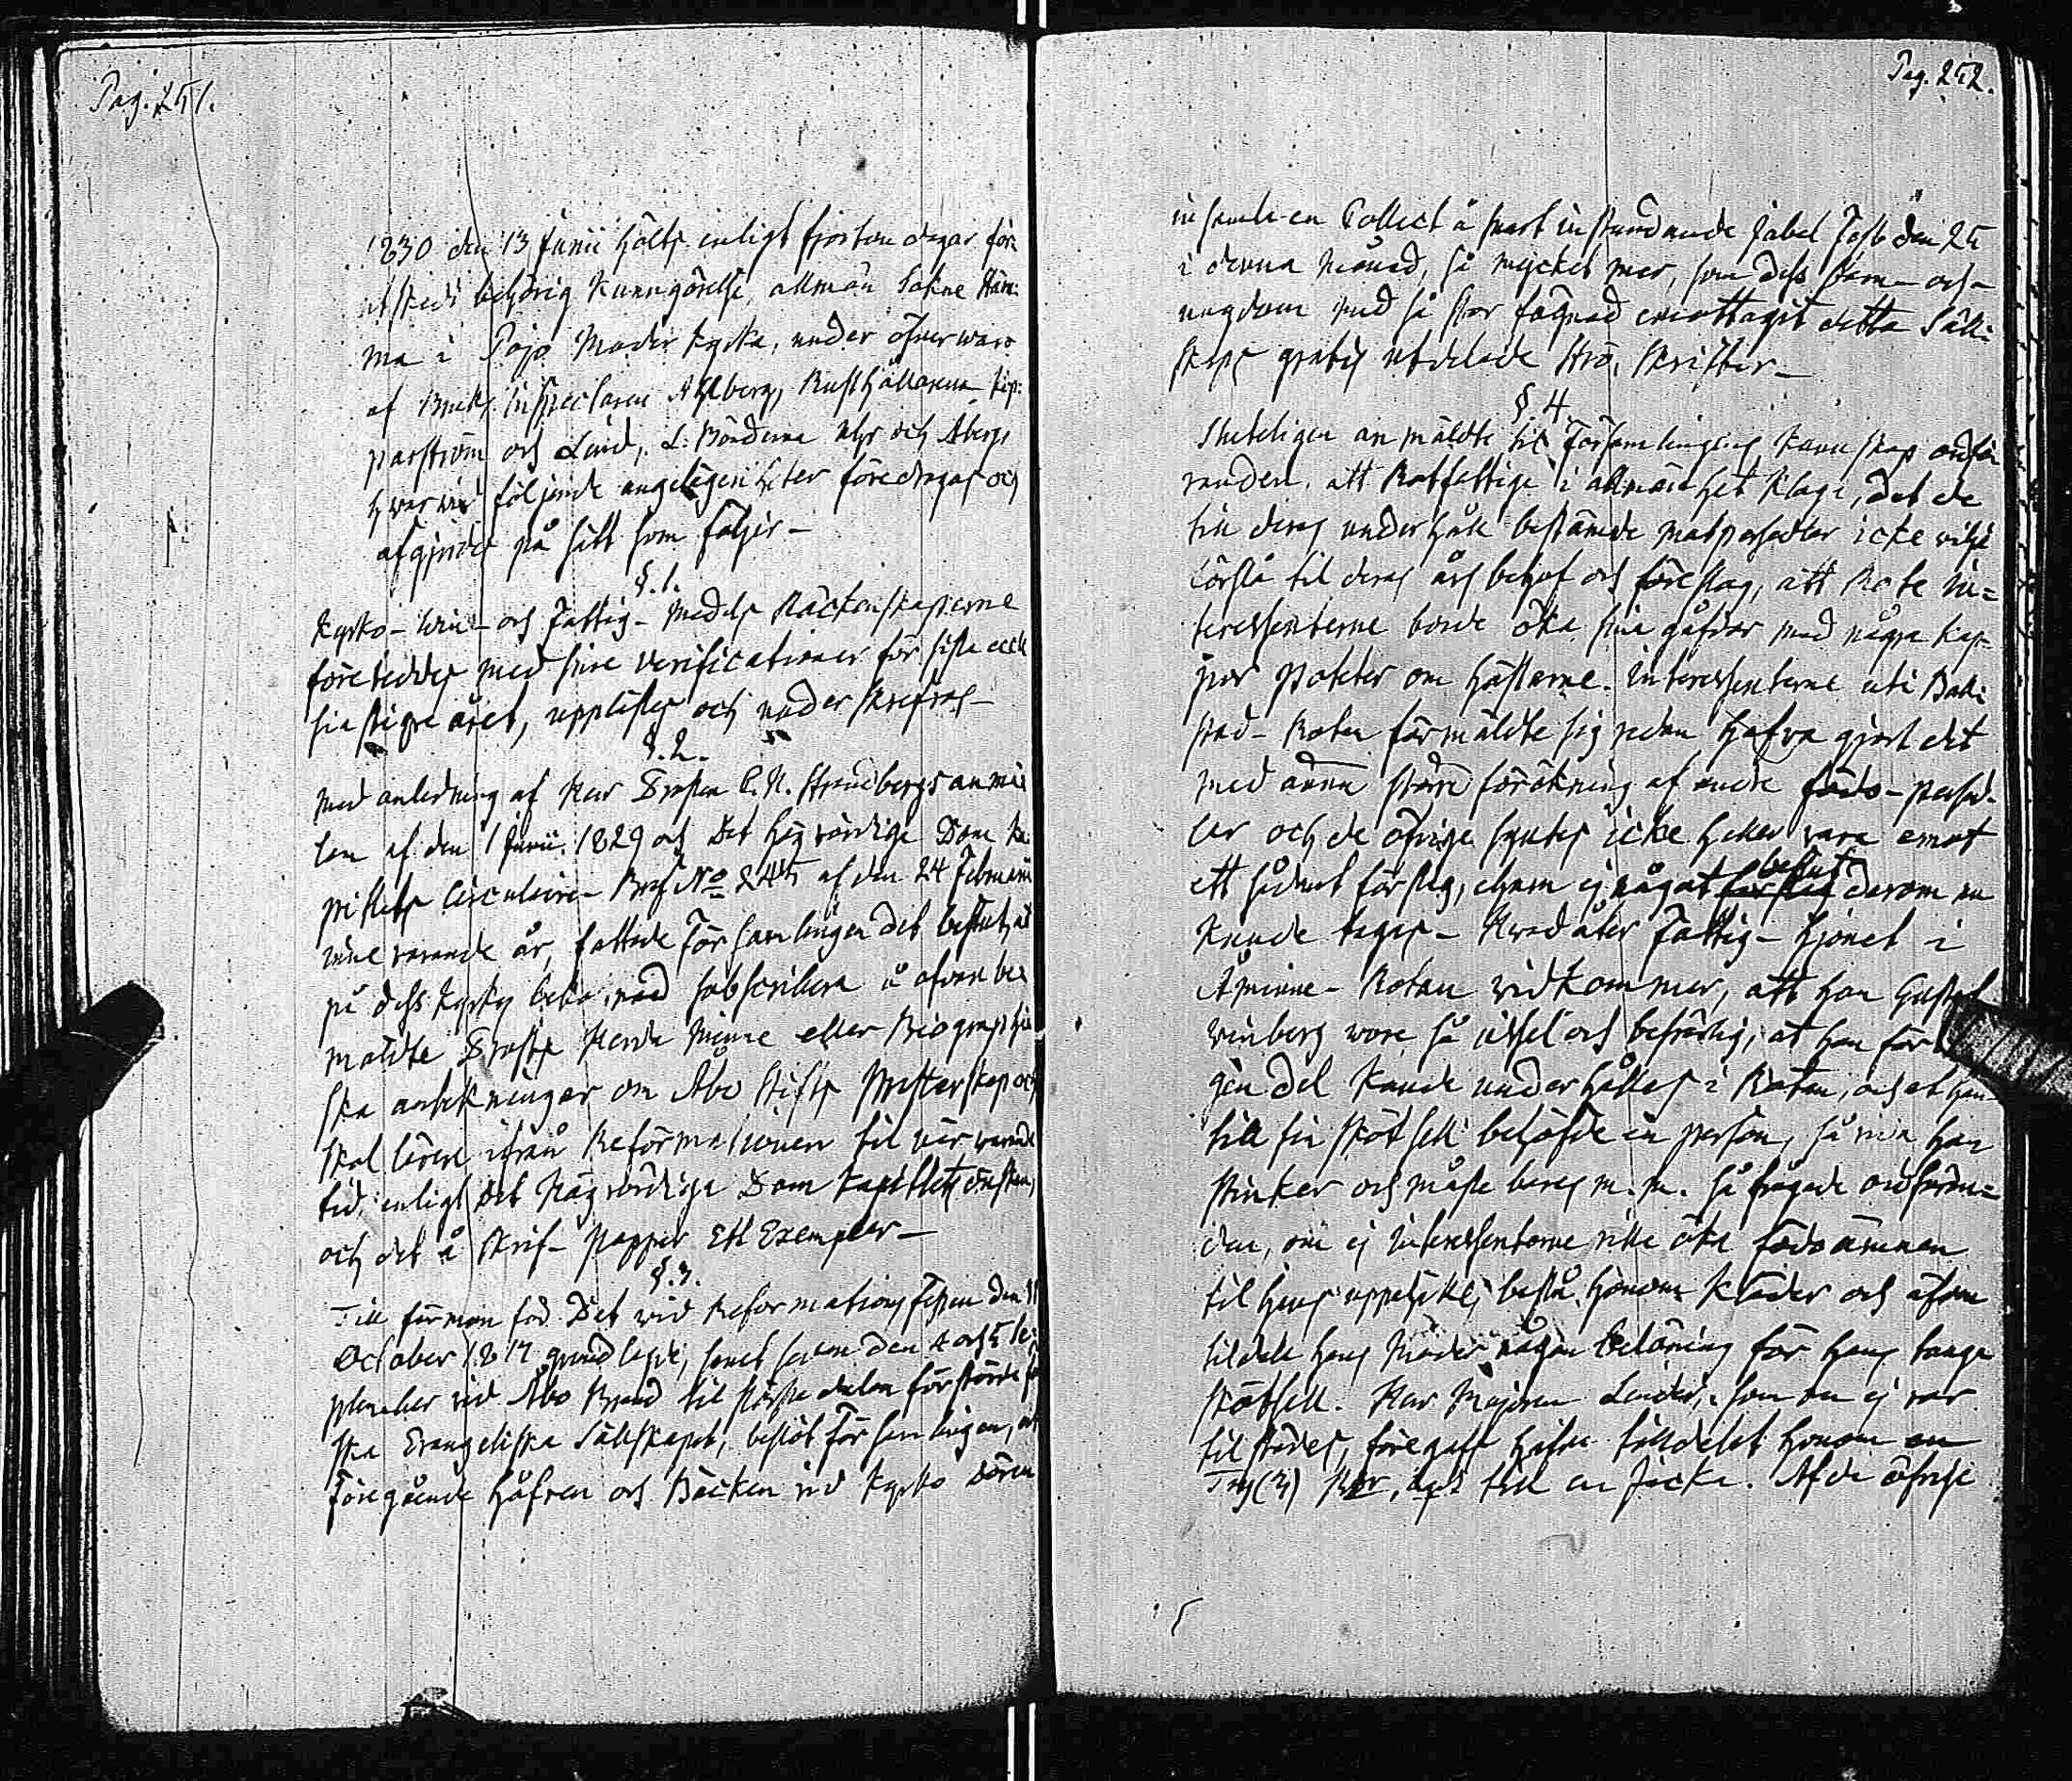 Pag. 251.
1830 den 13 Junii hölts enligt fjorton dagar före
utskedt behörig kunngörelse, allmän Sokne Stäm:
ma i Pojo Moder Kyrka, under öfverwaro
af Bruks Inspectoren Ahlberg, Rusthållarena Kop:
parström och Lind, L. Bönderna och Åbergs
hvarvid följande angelägenheter föredrogos och
afgjordes på sätt som följer –
§. 1.
Kyrko- Win- och Fattig- Medels Räckenskaperne
företeddes med sine Verificationer för sista eccle
siastique året, upplästes och underskrefvos –
§. 2.
Med anledning af Herr Prosten C. H. Strandbergs anmä
lan af den 1 Junii 1829 och Det Högvördige Dom Ka
pitlets Circulaire- Bref No 245 af den 24 Februarii
inne varande år, fattade Församlingen det beslut, at
på dess Kyrkas bekostnad subscribera å ofvan be
mäldte Prosts Herda Minne eller Biographi
ska anteckningar om Åbo Stifts Presterskap och
Skol lärare ifrån Reformationen til när warande
tid, enligt det Högvördiga Dom Kapitlets önskan,
och det å Skrif- papper Ett Exemplar –
§. 3.
Till förmon för Det vid Reformations festen den 31
October 1817 grundlagde, samt sedan den 4 och 5 Se
ptember vid Åbo Brand til största delen förstörde Fin
ska Evangeliska Sällskapet, beslöt Församlingen, at
Föregående Håfven och Bäcken vid Kyrko dören
Pag. 252.
insamla en Collect å snart instundande Jubel Fest den 25
i denna Månad, så mycket mer, som dess barn- och
ungdom med så stor fägnad emottagit detta Säll:
skaps gratis utdelade Strö- Skrifter –
§. 4.
Sluteligen anmäldte til Församlingens kännskap ordfö
randen, att Rotfattige i allmänhet klaga, det de
till deras underhåll bestämde matpersedlar icke vilja
förslå til deras års behof och föreslag, att Rote In=
teressenterne borde öka sina gåfvor med några kap-
par Potäter om höstarne. Interessenterne uti Bali
stad- Roten förmäldte sig redan hafva gjort det
med annu större förökning af andra födo- persed-
lar och de öfriga syntes icke heller vara emot
ett sådant förslag, ehuru ej något beslut derom nu
kunde tagas – Hvad åter Fattig- Hjonet i
Åminne- Rotan vidkommer, att han Gustaf
Winberg wore så ussel och besvärlig, at han för
gen del kunde underhållas i Rotan, och at han
till sin skötsel behöfde en person, så vida han
stinker och måste bäras m. m. så frågade ordföran=
den, om ej Interessenterne ville öka födoämnen
til hans uppehälle, bestå honom kläder och äfven
tildela hans Moder någon belöning för hans tunga
skötsell. Herr Majoren Linder, som nu ej var
tilstädes, föregafs hafva tilldelat honom en
Try (3) Rbr, tyg till en Jacka. Af de öfrige